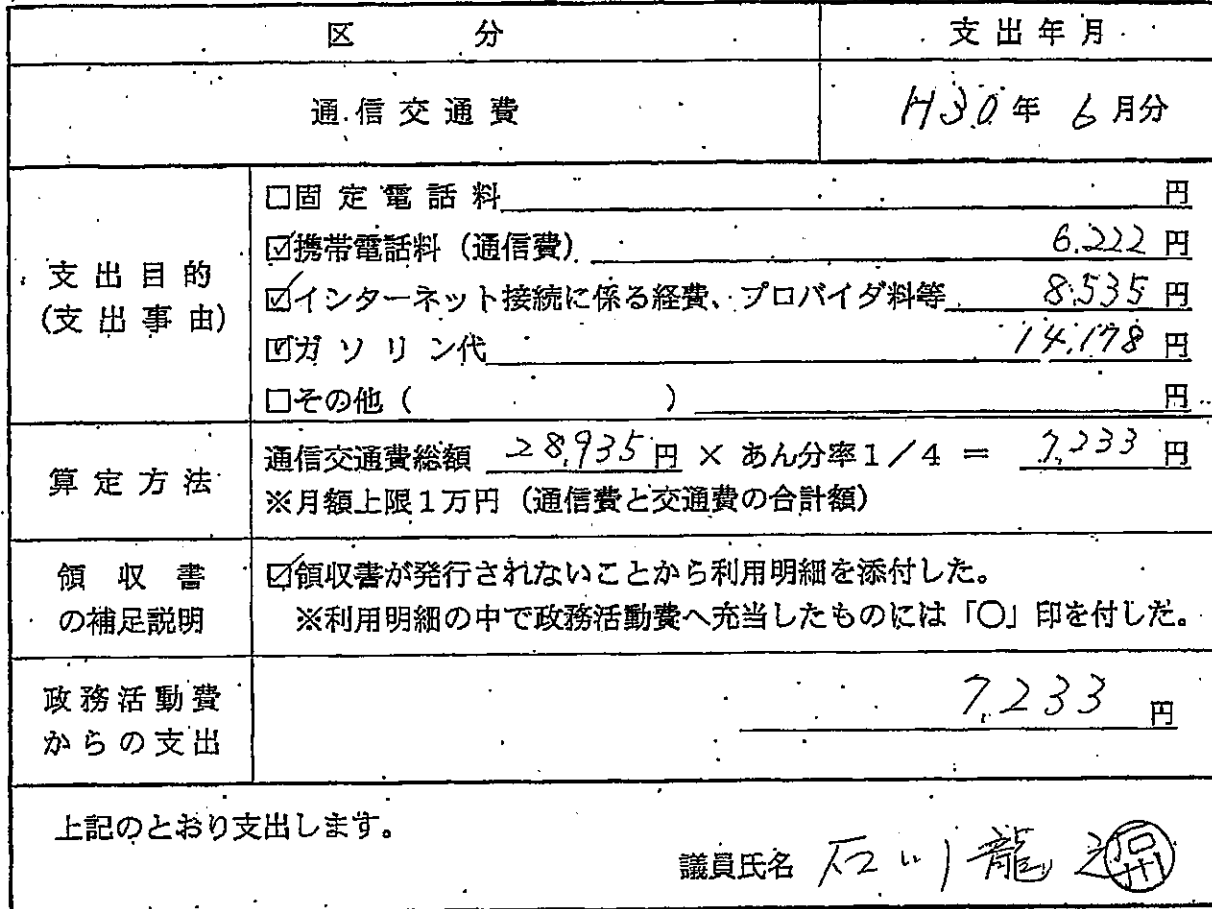 区分 支出年月
通信交通費 H30年 6月分
支出目的
(支出事由)
□固定電話料 円
☑携帯電話料（通信費） 6,222 円
☑インターネット接続に係る経費、プロバイダ料等 8,535 円
☑ガソリン代 14,178 円
□その他（ ） 円
算定方法
通信交通費総額 28,935 円 × あん分率1／4 ＝ 7,233 円
※月額上限1万円（通信費と交通費の合計額）
領収書
の補足説明
☑領収書が発行されないことから利用明細を添付した。
※利用明細の中で政務活動費へ充当したものには「〇」印を付した。
政務活動費
からの支出
7,233 円
上記のとおり支出します。
議員氏名 石川龍之 石川